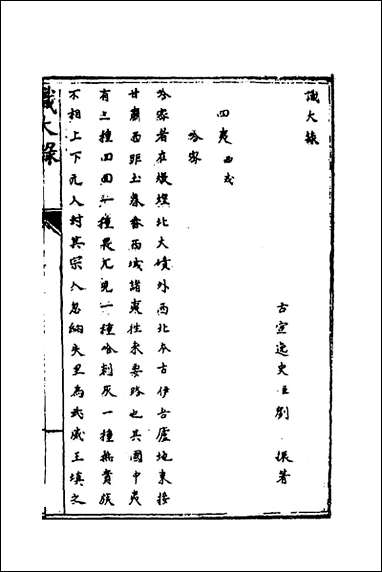 識大錄
古宣逸史臣劉 振著
四夷 西戎
哈密
哈密者在燉煌北大磧外西北本古伊吾廬地東接
甘肅西距土魯番西域諸夷往來要路也其國中夷
有三種回回一種畏兀兒一種哈剌灰一種無貴族
不相上下元人封其宗人忽納失里為武威王填之
識大錄